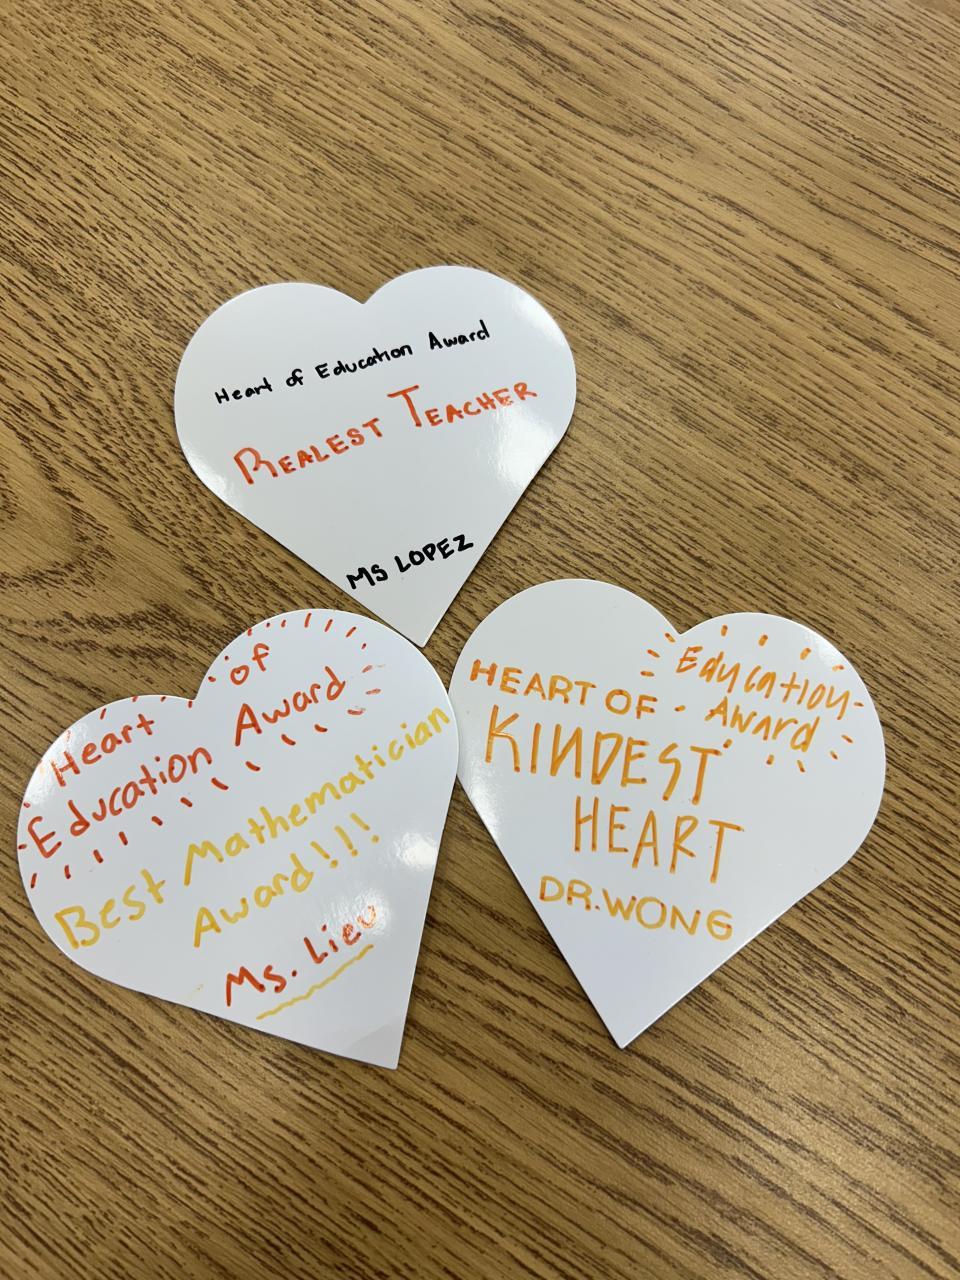 Heart of Education Award
REALEST TEACHER
MS LOPEZ
Heart of
Education Award
Best Mathematician
Award!!!
Ms. Lieu
HEART OF Education
Award
KINDEST
HEART
DR.WONG